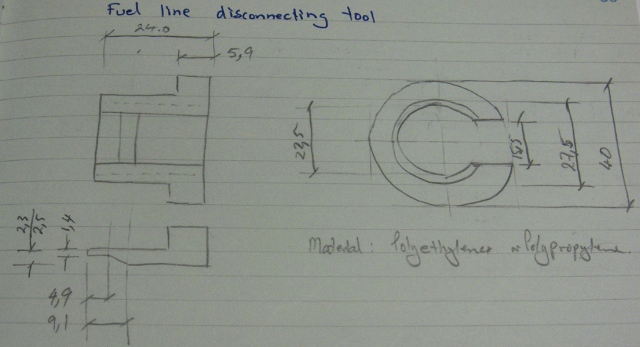 Fuel line disconnecting tool
24.0
5,9
23,5
15,5
27,5
40
2,3
2,5
1,4
Material: Polyethylene or Polypropylene
4,9
9,1